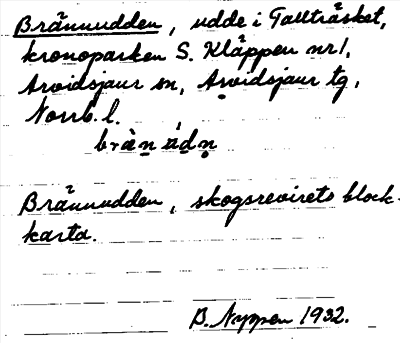 Brännudden, udde i Tallträsket,
kronoparken S. Kläppen nr 1,
Arvidsjaur sn, Arvidsjaur tg,
Norrb. l.
Brännudden, skogsrevirets block-
karta.
B. Nyppen 1932.